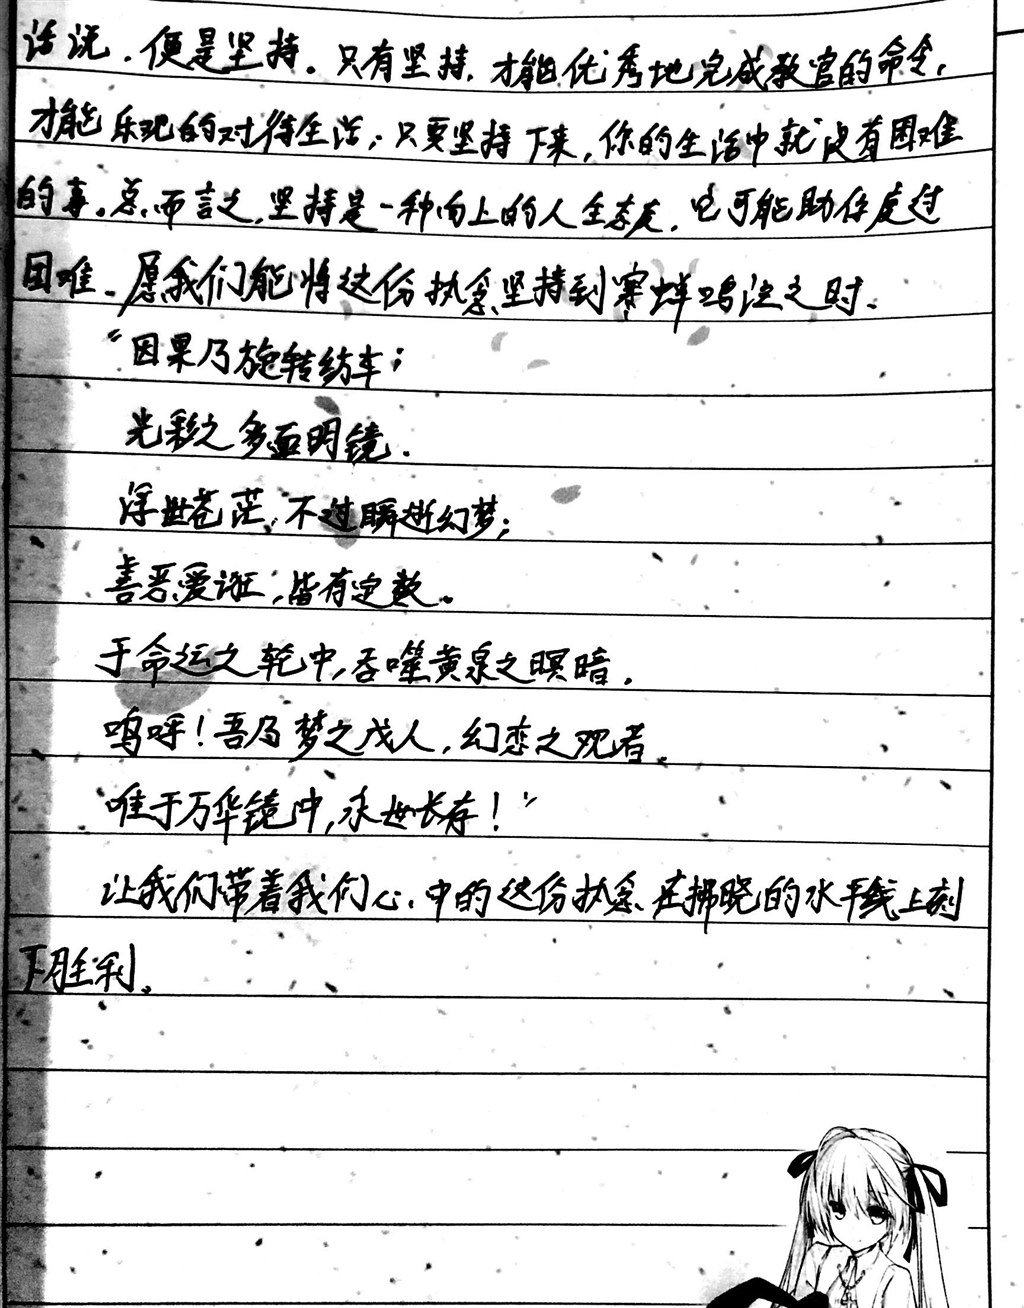 话说，便是坚持。只有坚持，才能优秀地完成教官的命令，
才能乐观的对待生活；只要坚持下来，你的生活中就没有困难
的事。总而言之，坚持是一种向上的人生态度，它可能助你度过
困难。愿我们能将这份执念坚持到寒蝉鸣泣之时。
“因果乃旋转纺车；
光彩之多面明镜．
浮世苍茫，不过瞬逝幻梦；
善恶爱诳，皆有定数。
于命运之轮中，吞噬黄泉之暝暗．
呜呼！吾乃梦之戍人，幻恋之观者。
唯于万华镜中，永世长存！”
让我们带着我们心中的这份执念，在拂晓的水平线上刻
下胜利。